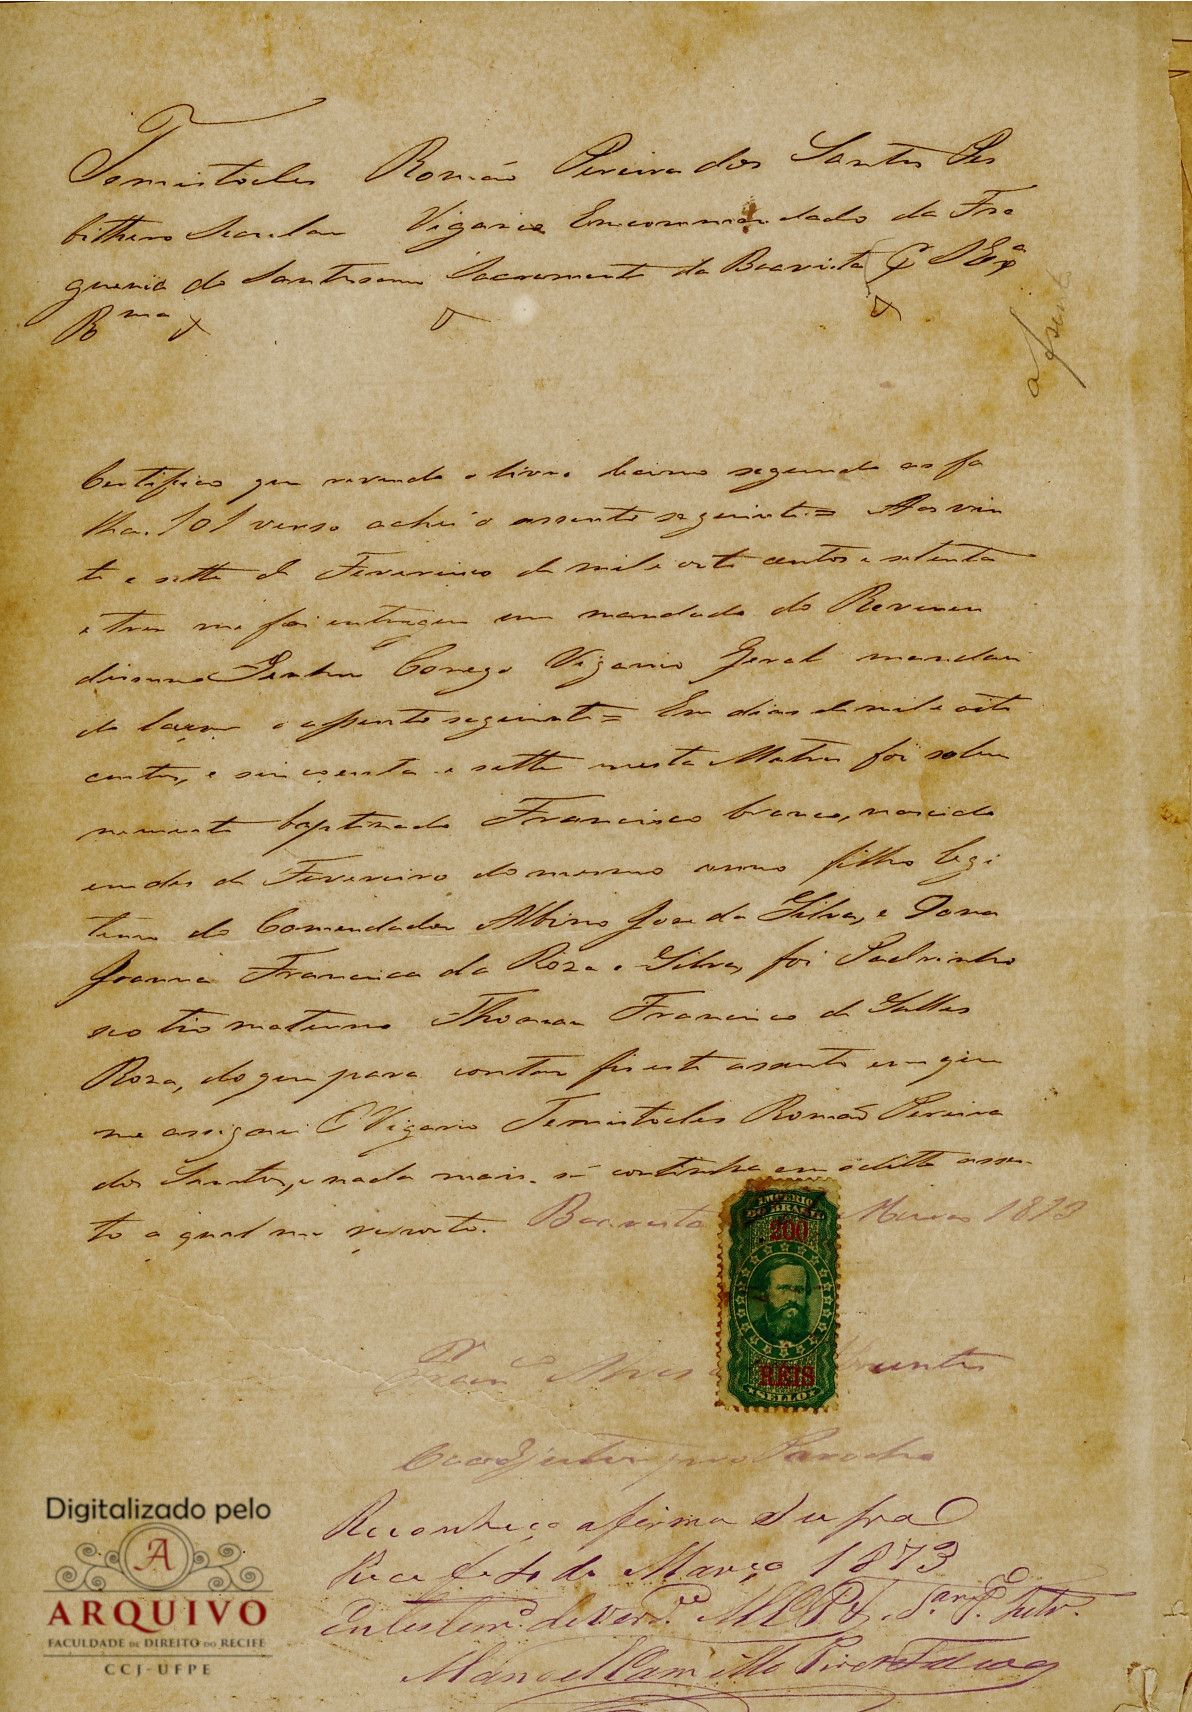 Temistocles Romão Pereira dos Santos Pres
bithero Secular Vigario Encommendado da Fre
guesia do Santissimo Sacramento da Boavista
Rma
assento
Certifico que revendo o livro decimo segundo as fo
lhas 101 verso achei o assento seguinte = Aos vin
te e sette de Fevereiro de mil e oito centos e setenta
e tres me foi entregue um mandado do Reveren
dissimo Senhor Conego Vigario Geral mandan
do lavrar o assento seguinte = Em dias de mil e oito
centos, e sincoenta e sette nesta Matriz foi solem
nemente baptizado Francisco branco, nascido
em dez de Fevereiro do mesmo anno filho legi
timo do Comendador Albino Jose da Silva, e Dona
Joanna Francisca da Roza e Silva, foi Padrinho
seo tio materno Thomaz Francisco de Salles
Roza, do que para constar fis este assento em que
me assignei O Vigario Temistocles Romão Pereira
dos Santos, e nada mais se continha em o ditto assen
to a qual me reporto. Boavista Março 1873
Coadjutor pro Parocho
Reconheço a firma supra
Recife 4 de Março 1873
Em testemo. de verde.
Manoel Camillo Pires Falcão
IMPERIO
DO BRASIL
200
REIS
SELLO
Digitalizado pelo
A
ARQUIVO
FACULDADE DE DIREITO DO RECIFE
CCJ-UFPE